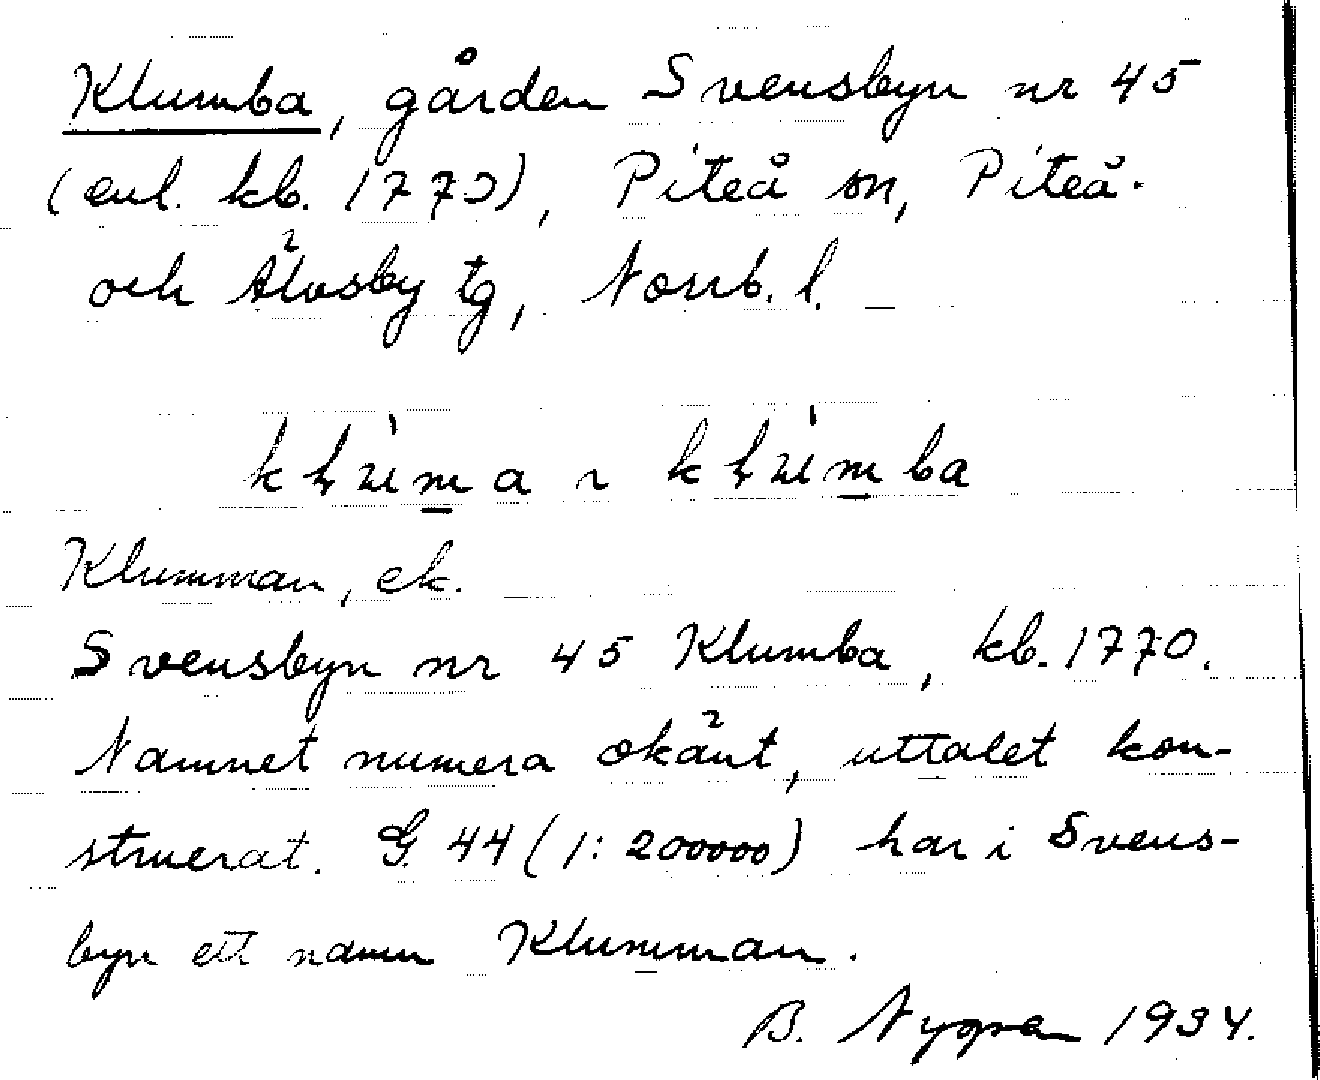 Klumba, gården Svensbyn nr 45
(enl. kb. 1770), Piteå sn, Piteå-
och Älvsby tg, Norrb. l. —
Klumman, ek.
Svensbyn nr 45 Klumba, kb. 1770.
Namnet numera okänt, uttalet kon-
struerat. G 44 (1:200000) har i Svens-
byn ett namn Klumman.
B. Nygren 1934.